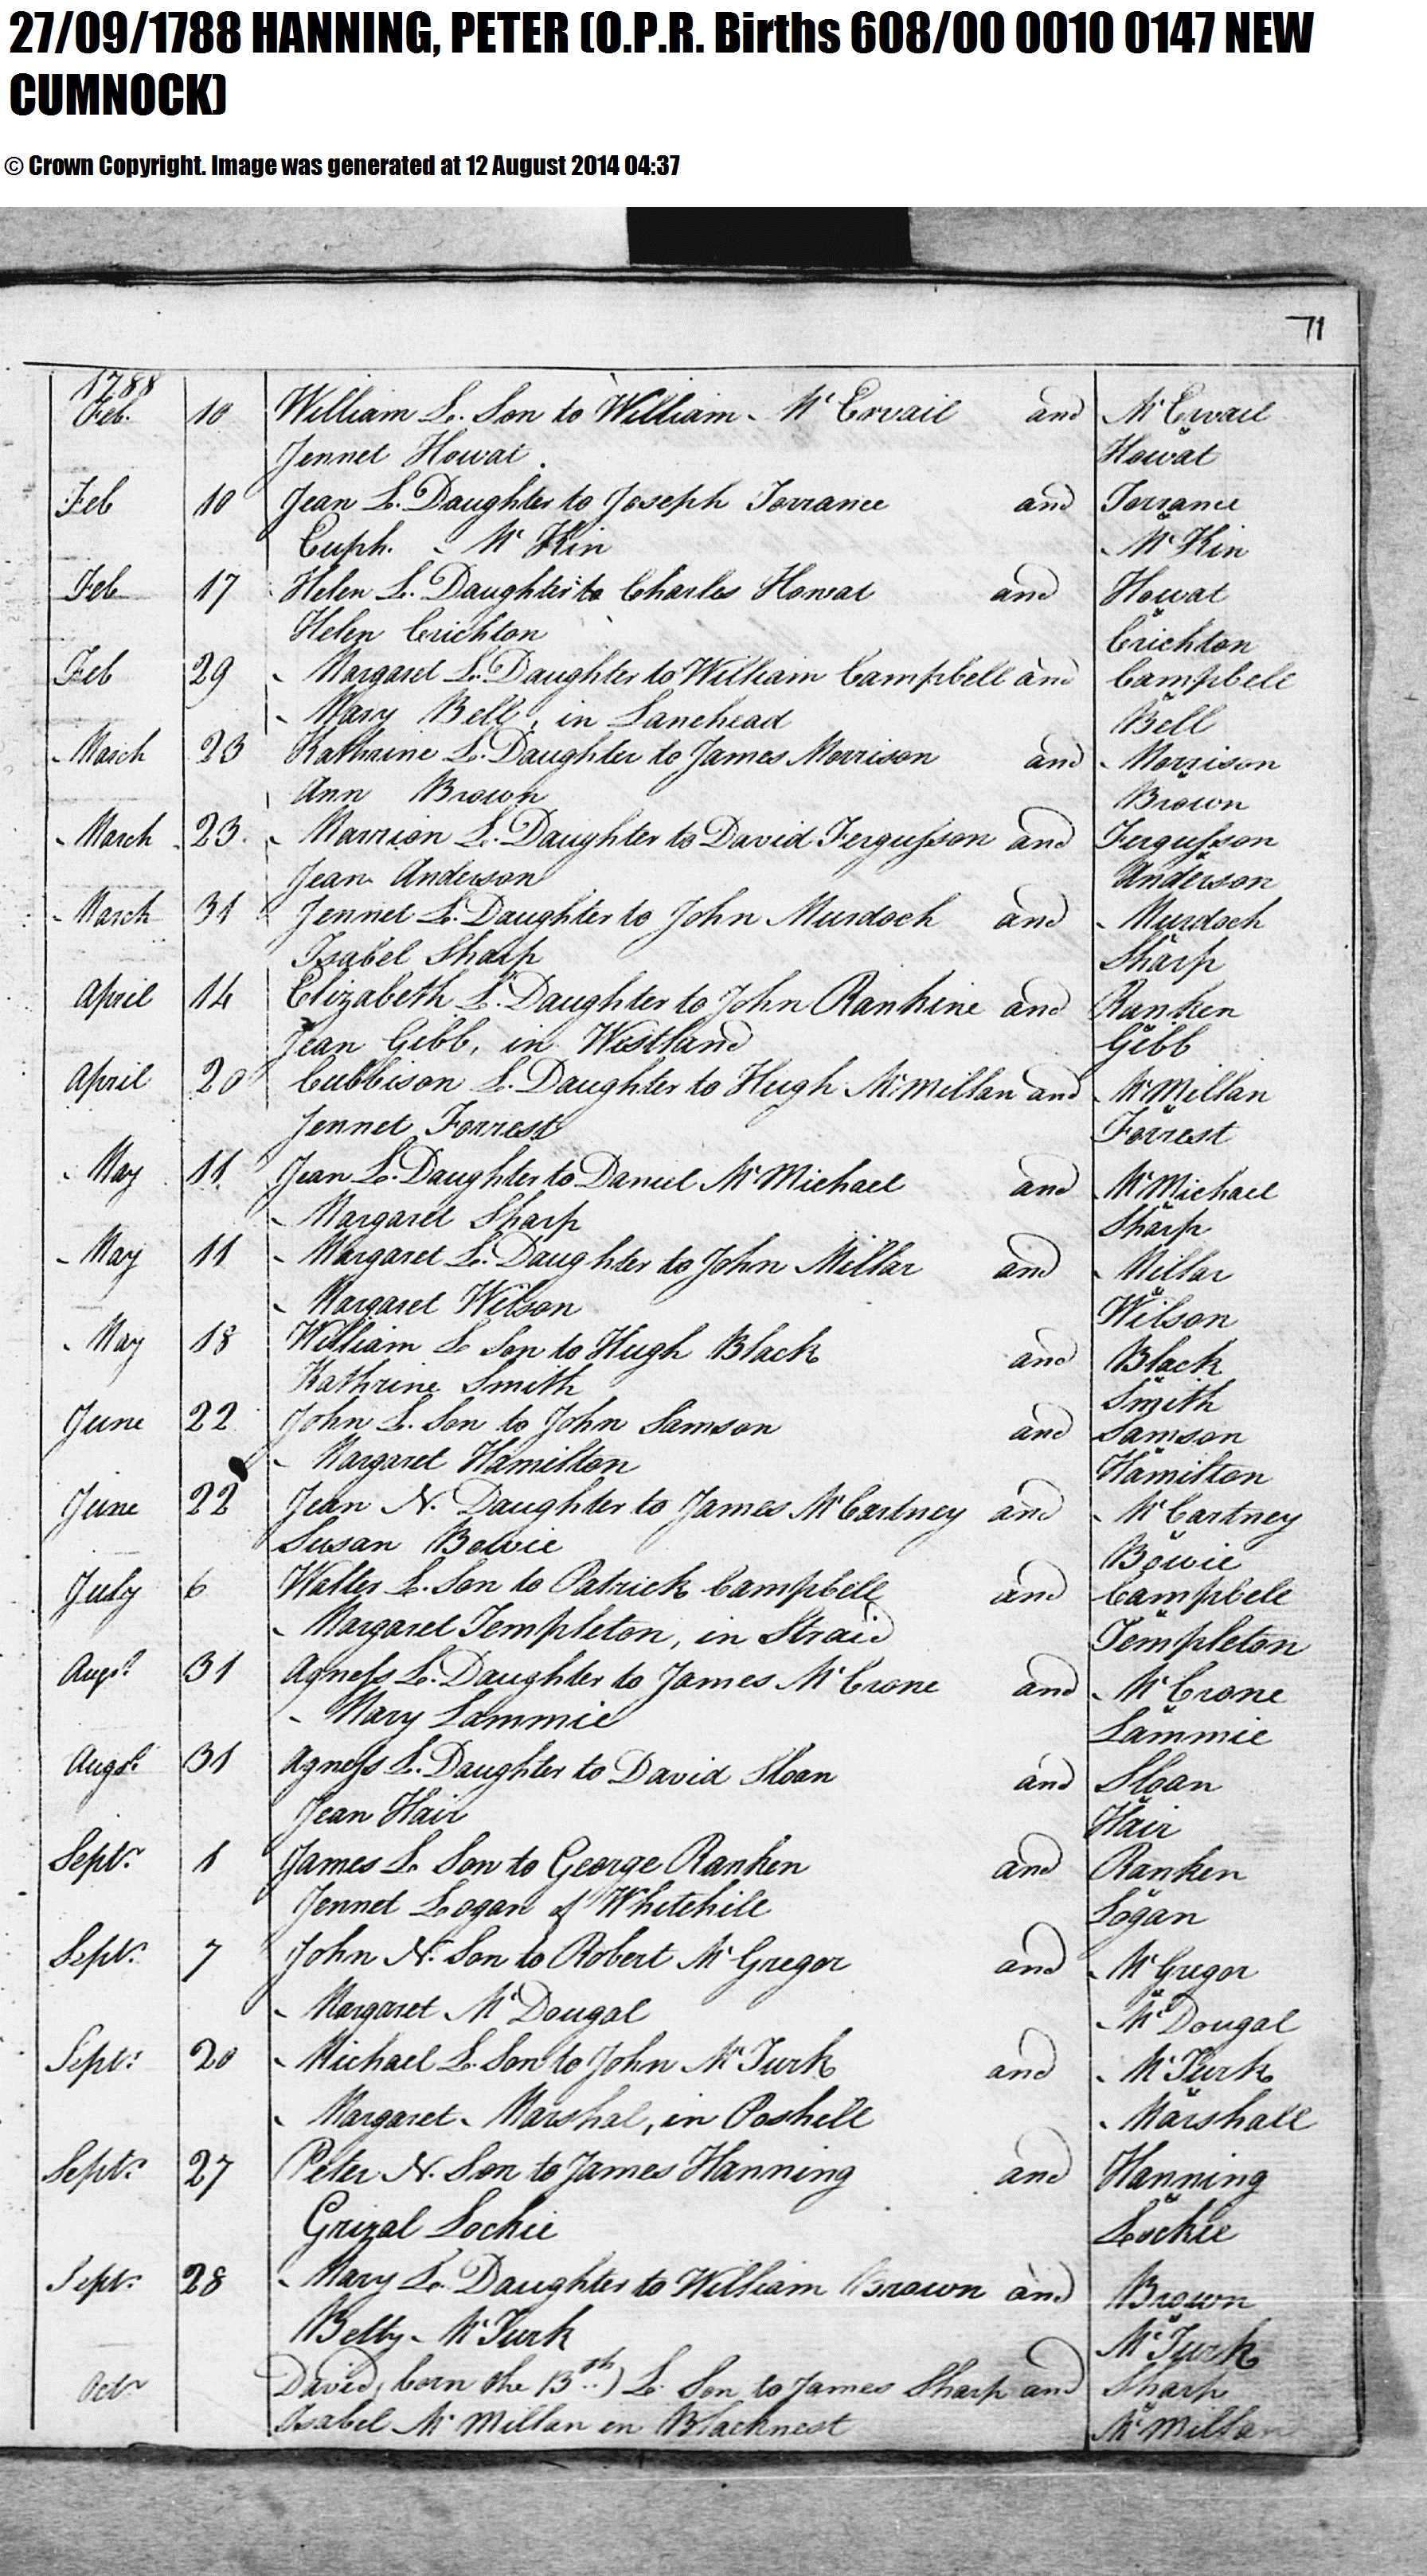 27/09/1788 HANNING, PETER (O.P.R. Births 608/00 0010 0147 NEW
CUMNOCK)
© Crown Copyright. Image was generated at 12 August 2014 04:37
71
1788
Feb. 10 William L. Son to William Mc Ervail and Mc Ervail
Jennet Howat. Howat
Feb 10 Jean L. Daughter to Joseph Torrance and Torrance
Euph. Mc Kin Mc Kin
Feb 17 Helen L. Daughter to Charles Howat and Howat
Helen Crichton Crichton
Feb 29 Margaret L. Daughter to William Campbell and Campbell
Mary Bell, in Lanehead Bell
March 23 Kathrine L. Daughter to James Morrison and Morrison
Ann Brown Brown
March 23. Marrion L. Daughter to David Fergusson and Fergusson
Jean Anderson Anderson
March 31 Jennet L. Daughter to John Murdoch and Murdoch
Isabel Sharp Sharp
April 14 Elizabeth L. Daughter to John Rankine and Ranken
Jean Gibb, in Westland Gibb
April 20 Cubbison L. Daughter to Hugh Mc Millan and Mc Millan
Jennet Forrest Forrest
May 11 Jean L. Daughter to Daniel Mc Michael and Mc Michael
Margaret Sharp Sharp
May 11 Margaret L. Daughter to John Millar and Millar
Margaret Wilson Wilson
May 18 William L Son to Hugh Black and Black
Kathrine Smith Smith
June 22 John L. Son to John Samson and Samson
Margaret Hamilton Hamilton
June 22 Jean N. Daughter to James Mc Cartney and Mc Cartney
Susan Bowie Bowie
July 6 Walter L. Son to Patrick Campbell and Campbell
Margaret Templeton, in Straid Templeton
Augt 31 Agness L. Daughter to James Mc Crone and Mc Crone
Mary Lammie Lammie
Augst 31 Agness L. Daughter to David Sloan and Sloan
Jean Hair Hair
Septr 1 James L. Son to George Ranken and Ranken
Jennet Logan of Whitehill Logan
Septr 7 John N. Son to Robert Mc Gregor and Mc Gregor
Margaret Mc Dougal Mc Dougal
Septr 20 Michael L. Son to John Mc Turk and Mc Turk
Margaret Marshal, in Poshill Marshall
Septr 27 Peter N. Son to James Hanning and Hanning
Grizal Lockie Lockie
Septr 28 Mary L. Daughter to William Brown and Brown
Betty Mc Turk Mc Turk
Octr David, born the 13th) L. Son to James Sharp and Sharp
Isabel Mc Millan in Blacknest Mc Millan